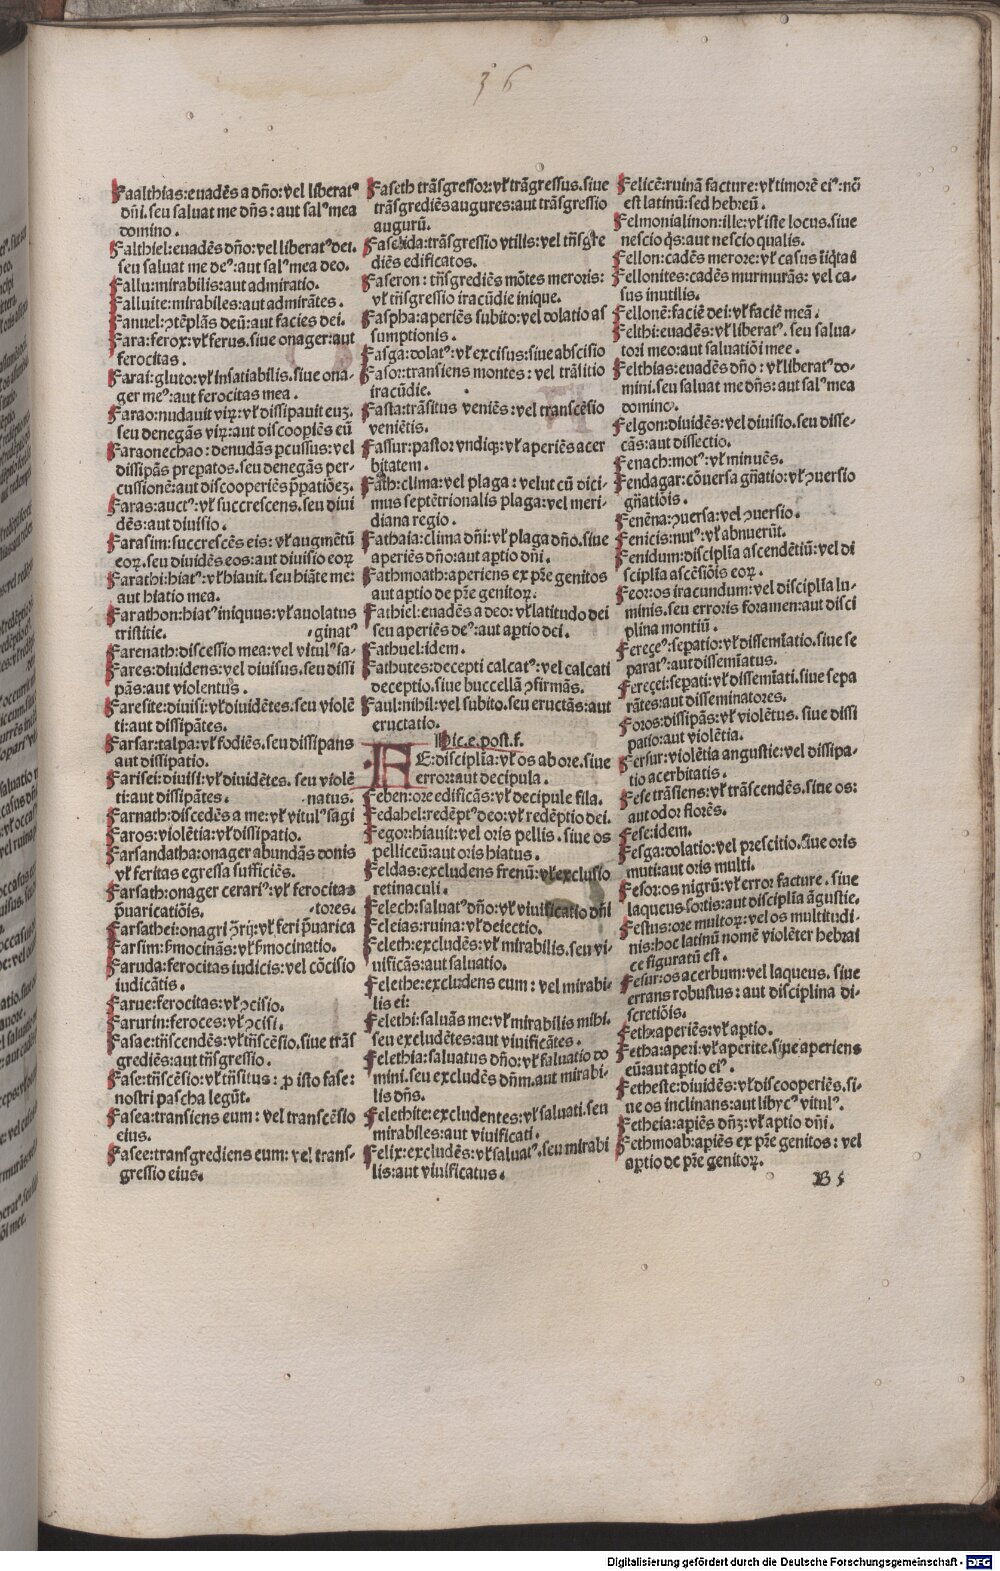 36
Faalthias:euadēs a dño:vel liberatꝰ
dñi.seu saluat me dñs:aut salꝰ mea
domino.
Falthiel:euadēs dño:vel liberatꝰ dei.
seu saluat me deꝰ:aut salꝰ mea deo.
Fallu:mirabilis:aut admiratio.
Falluite:mirabiles:aut admirātes.
Fanuel:ꝯtēplās deū:aut facies dei.
Fara:ferox:vł ferus.siue onager:aut
ferocitas.
Farai:gluto:vł insatiabilis.siue ona-
ger meꝰ:aut ferocitas mea.
Farao:nudauit virꝝ:vł dissipauit euꝫ.
seu denegās virꝝ:aut discoopiēs eū
Faraonechao:denudās ꝑcussus:vel
dissipās preparatos.seu denegās per-
cussionē:aut discooperiēs p̄patiōeꝫ.
Faras:auctꝰ:vł succrescens.seu diui
dēs:aut diuisio.
Farasim:succrescēs eis:vł augmētū
eoꝝ.seu diuidēs eos:aut diuisio eoꝝ
Farathi:hiatꝰ:vł hiauit.seu hiāte me:
aut hiatio mea.
Farathon:hiatꝰ iniquus:vł auolatus
tristitie. ·ginatꝰ
Farenath:discessio mea:vel vitulꝰ sa-
Fares:diuidens:vel diuisus.seu dissi
pās:aut violentus.
Faresite:diuisi:vł diuidētes.seu violē
ti:aut dissipātes.
Farsar:talpa:vł fodiēs.seu dissipans
aut dissipatio.
Farisei:diuisi:vł diuidētes.seu violē
ti:aut dissipātes. ·natus.
Farnath:discedēs a me:vł vitulꝰ sagi
Faros:violētia:vł dissipatio.
Farsandatha:onager abundās donis
vł feritas egressa sufficiēs.
Farsath:onager cerariꝰ:vł ferocitas
p̄uaricatiōis. ·tores.
Farsathei:onagri ꝯ̄rij:vł feri p̄uarica
Farsim:f̄mocinās:vł f̄mocinatio.
Faruda:ferocitas iudicis:vel cōcisio
iudicātis.
Farue:ferocitas:vł ꝯcisio.
Farurin:feroces:vł ꝯcisi.
Fasae:trñscendēs:vł trñscēsio.siue trās
grediēs:aut trñsgressio.
Fase:trñscēsio:vł trñsitus:ꝓ isto fase:
nostri pascha legūt.
Fasea:transiens eum:vel transcēsio
eius.
Fasee:transgrediens eum:vel trans-
gressio eius.
Faseth trāsgressor:vł trāgressus.siue
trāsgrediēs augures:aut trāsgressio
augurū.
Faseida:trāsgressio vtilis:vel trñsgre
diēs edificatos.
Faseron:trñsgrediēs mōtes meroris:
vł trñsgressio iracūdie inique.
Faspha:aperiēs subito:vel dolatio as
sumptionis.
Fasga:dolatꝰ:vł excisus:siue abscisio
Fasor:transiens montes:vel trāsitio
iracūdie.
Fasta:trāsitus veniēs:vel transcēsio
veniētis.
Fassur:pastor vndiqꝫ:vł aperiēs acer
bitatem.
Fath:clima:vel plaga:velut cū dici-
mus septētrionalis plaga:vel meri-
diana regio.
Fathaia:clima dñi:vł plaga dño.siue
aperiēs dño:aut aptio dñi.
Fathmoath:aperiens ex pr̄e genitos
aut aptio de pr̄e genitoꝝ.
Fathiel:euadēs a deo:vł latitudo dei
seu aperiēs deꝰ:aut aptio dei.
Fathuel:idem.
Fathutes:decepti calcatꝰ:vel calcati
deceptio.siue buccellā ꝯfirmās.
Faul:nihil:vel subito.seu eructās:aut
eructatio.
Hic.e.post.f.
FE:disciplīa:vł os abore.siue
error:aut decipula.
Feben:ore edificās:vł decipule fila.
Fedahel:redēptꝰ deo:vł redēptio dei.
Fegor:hiauit:vel oris pellis.siue os
pelliceū:aut oris hiatus.
Feldas:excludens frenū:vł exclusio
retinaculi.
Felech:saluatꝰ dño:vł viuificatio dñi
Feleias:ruina:vł deiectio.
Feleth:excludēs:vł mirabilis.seu vi-
uificās:aut saluatio.
Felethe:excludens eum:vel mirabi-
lis ei:
Felethi:saluās me:vł mirabilis mihi.
seu excludētes:aut viuificātes.
Felethia:saluatus dño:vł saluatio do
mini.seu excludēs dñm.aut mirabi-
lis dñs.
Felethite:excludentes:vł saluati.seu
mirabiles:aut viuificati.
Felix:excludēs:vł saluatꝰ.seu mirabi
lis:aut viuificatus.
Felicē:ruinā facture:vł timorē eiꝰ:nō
est latinū:sed hebreū.
Felmonialinon:ille:vł iste locus.siue
nescio q̄s:aut nescio qualis.
Fellon:cadēs merore:vł casus iniq̄tas
Fellonites:cadēs murmurās:vel ca-
sus inutilis.
Fellonē:faciē dei:vł faciē meā.
Felthi:euadēs:vł liberatꝰ.seu salua-
tori meo:aut saluatiōi mee.
Felthias:euadēs dño:vł liberatꝰ do-
mini.seu saluat me dñs:aut salꝰ mea
domino.
Felgon:diuidēs:vel diuisio.seu disse-
cās:aut dissectio.
Fenach:motꝰ:vł minuēs.
Fendagar:cōuersa gñatio:vł ꝯuersio
gñatiōis.
Fenēna:ꝯuersa:vel ꝯuersio.
Fenicis:nutꝰ:vł abnuerūt.
Fenidum:disciplīa ascendētiū:vel di
sciplīa ascēsiōis eoꝝ.
Feor:os iracundum:vel disciplīa lu-
minis.seu erroris foramen:aut disci
plina montiū.
Fereçeꝰ:sepatio:vł dissemīatio.siue se
paratꝰ:aut dissemīatus.
Fereçei:sepati:vł dissemīati.siue sepa
rātes:aut disseminatores.
Foros:dissipās:vł violētus.siue dissi
patio:aut violētia.
Fersur:violētia angustie:vel dissipa-
tio acerbitatis.
Fese trāsiens:vł trāscendēs.siue os:
aut odor florēs.
Fese:idem.
Fesga:dolatio:vel prescitio.siue oris
muti:aut oris multi.
Fesor:os nigrū:vł error facture.siue
laqueus sortis:aut disciplīa āgustie.
Festus:ore multoꝝ:vel os multitudi-
nis:hoc latinū nomē violēter hebrai
ce figuratū est.
Fesur:os acerbum:vel laqueus.siue
errans robustus:aut disciplina di-
scretiōis.
Feth:aperiēs:vł aptio.
Fetha:aperi:vł aperite.siue aperiens
eū:aut aptio eiꝰ.
Fetheste:diuidēs:vł discooperiēs.si-
ue os inclinans:aut libycꝰ vitulꝰ.
Fetheia:apiēs dñꝫ:vł aptio dñi.
Fethmoab:apiēs ex pr̄e genitos:vel
aptio de pr̄e genitoꝝ.
B 5
Digitalisierung gefördert durch die Deutsche Forschungsgemeinschaft - DFG